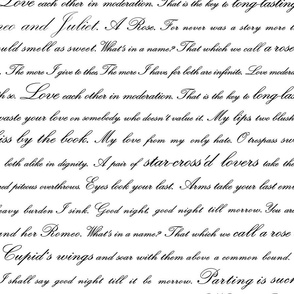 Love each other in moderation. That is the key to long-lasting
eo and Juliet. A Rose. For never was a story more
ould smell as sweet. What's in a name? That which we call a rose
. The more I give to thee, The more I have, for both are infinite. Love modera
h so. Love each other in moderation. That is the key to long-las
waste your love on somebody, who doesn't value it. My lips, two blush
iss by the book. My love from my only hate. O trespass sw
both alike in dignity. A pair of star-cross'd lovers take the
red piteous overthrows. Eyes look your last. Arms take your last em
eavy burden I sink. Good night, good night till morrow. You are
and her Romeo. What's in a name? That which we call a rose
Cupid's wings and soar with them above a common bound.
I shall say good night till it be morrow. Parting is such